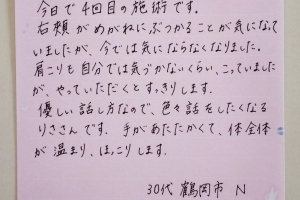 今日で4回目の施術です。
右頬がめがねにぶつかることが気になって
いましたが、今では気にならなくなりました。
肩こりも自分では気づかないくらい、こっていました
が、やっていただくとすっきりします。
優しい話し方なので、色々話をしたくなる
りささんです。手があたたかくて、体全体
が温まり、ほっこりします。
30代 鶴岡市 N